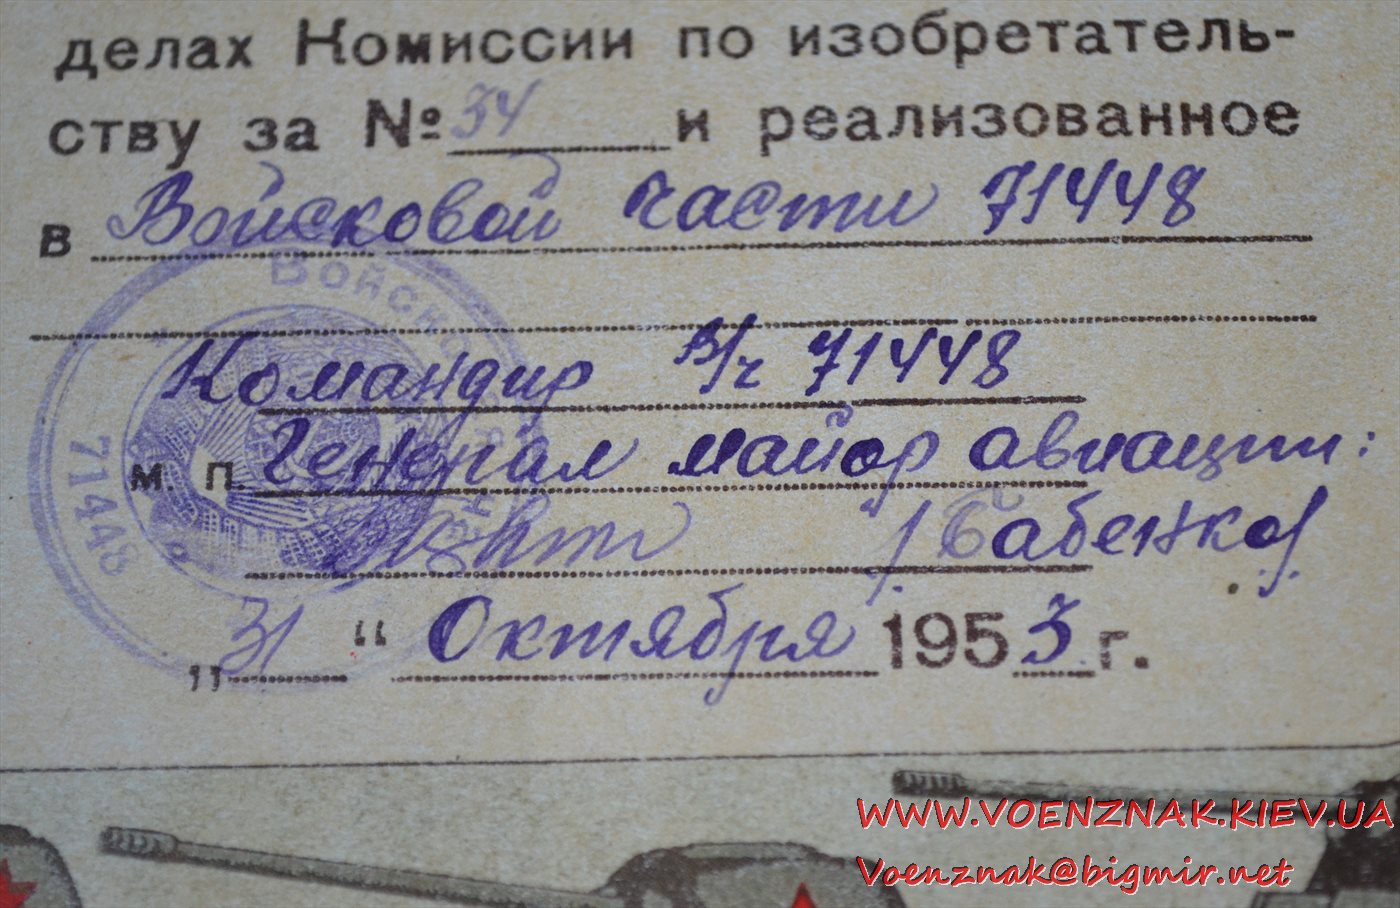 делах Комиссии по изобретатель-
ству за № 34 и реализованное
в Войсковой части 71448
Войско
71448
Командир в/ч 71448
м. п. Генерал майор авиации:
/Бабенко/
„31“ Октября 1953 г.
WWW.VOENZNAK.KIEV.UA
Voenznak@bigmir.net